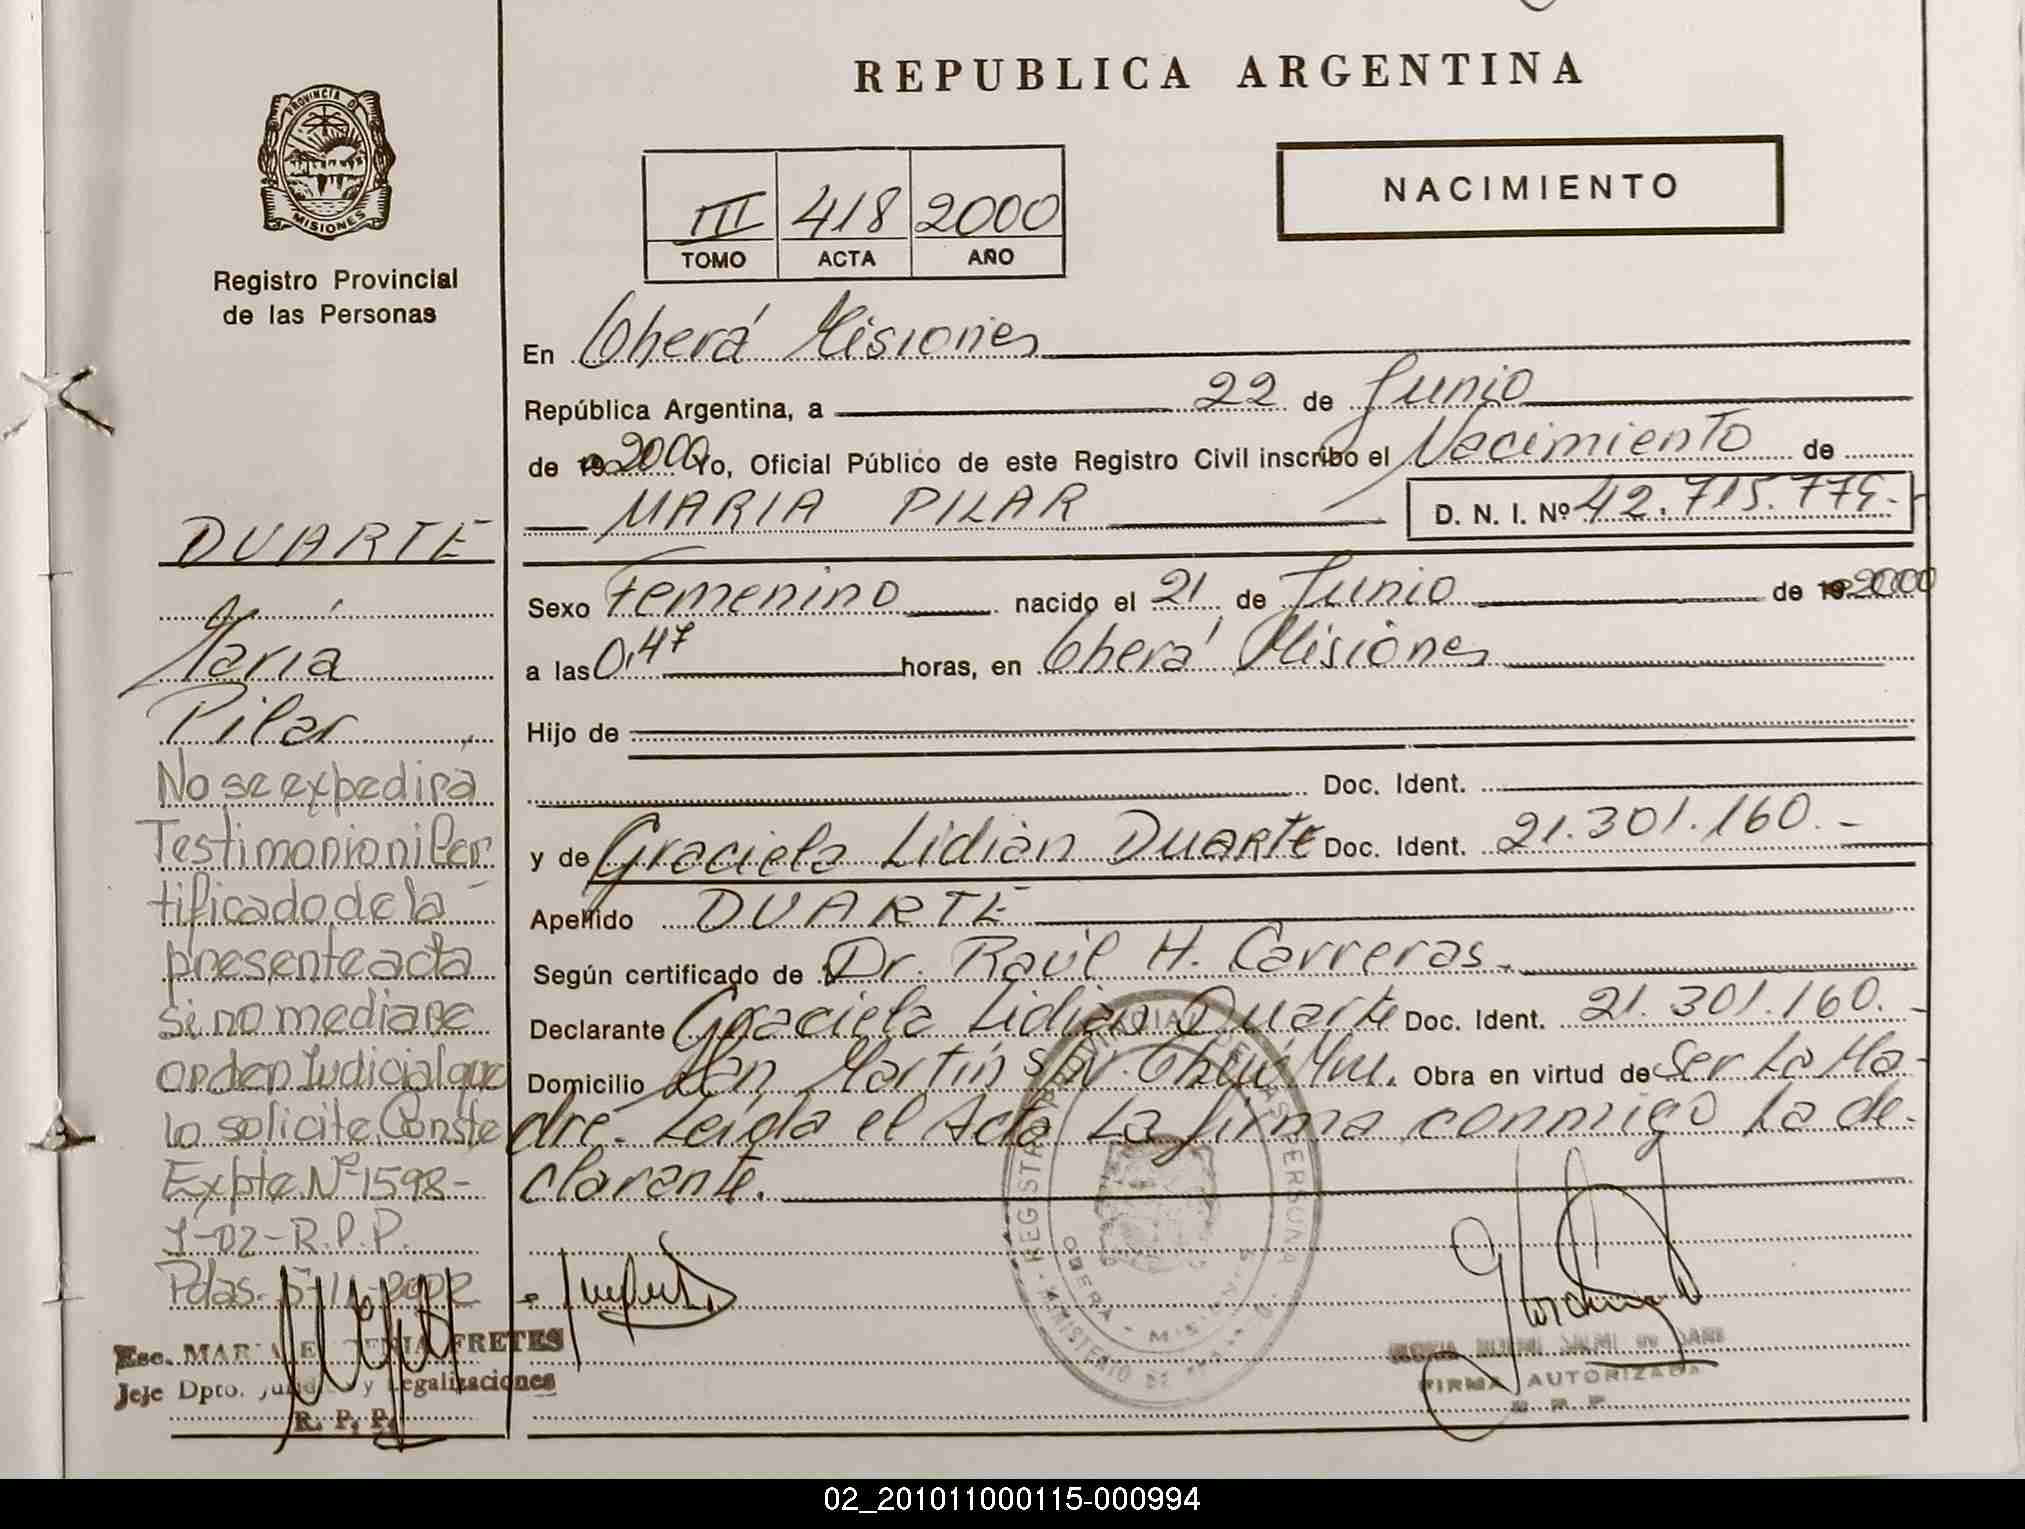 REPUBLICA ARGENTINA
PROVINCIA D
MISIONES
Registro Provincial
de las Personas
III 418 2000
TOMO ACTA AÑO
NACIMIENTO
En Oberá Misiones
República Argentina, a 22 de Junio
de 19 2000 Yo, Oficial Público de este Registro Civil inscribo el Nacimiento de
MARIA PILAR D. N. I. Nº 42.715.774.-
Sexo Femenino nacido el 21 de Junio de 19 2000
a las 0,47 horas, en Oberá Misiones
Hijo de
Doc. Ident.
y de Graciela Lidian Duarte Doc. Ident. 21.301.160.-
Apellido DUARTE
Según certificado de Dr. Raúl H. Carreras.
Declarante Graciela Lidian Duarte Doc. Ident. 21.301.160.-
Domicilio San Martín Obra en virtud de Ser La Ma-
dre. Leída el Acta La firma conmigo La de-
clarante.
DUARTE
María
Pilar
No se expedira
Testimonio ni Cer
tificado de la
presente acta
si no mediare
orden Judicial que
lo solicite. Conste
Expte. Nº 1598-
Y-02-R.P.P.
Pdas. 5-11-2002
Esc. MARIA E FRETES
Jefe Dpto. y Legalizaciones
R. P. P.
OBERA - MISIONES
FIRMA AUTORIZADA
02_201011000115-000994